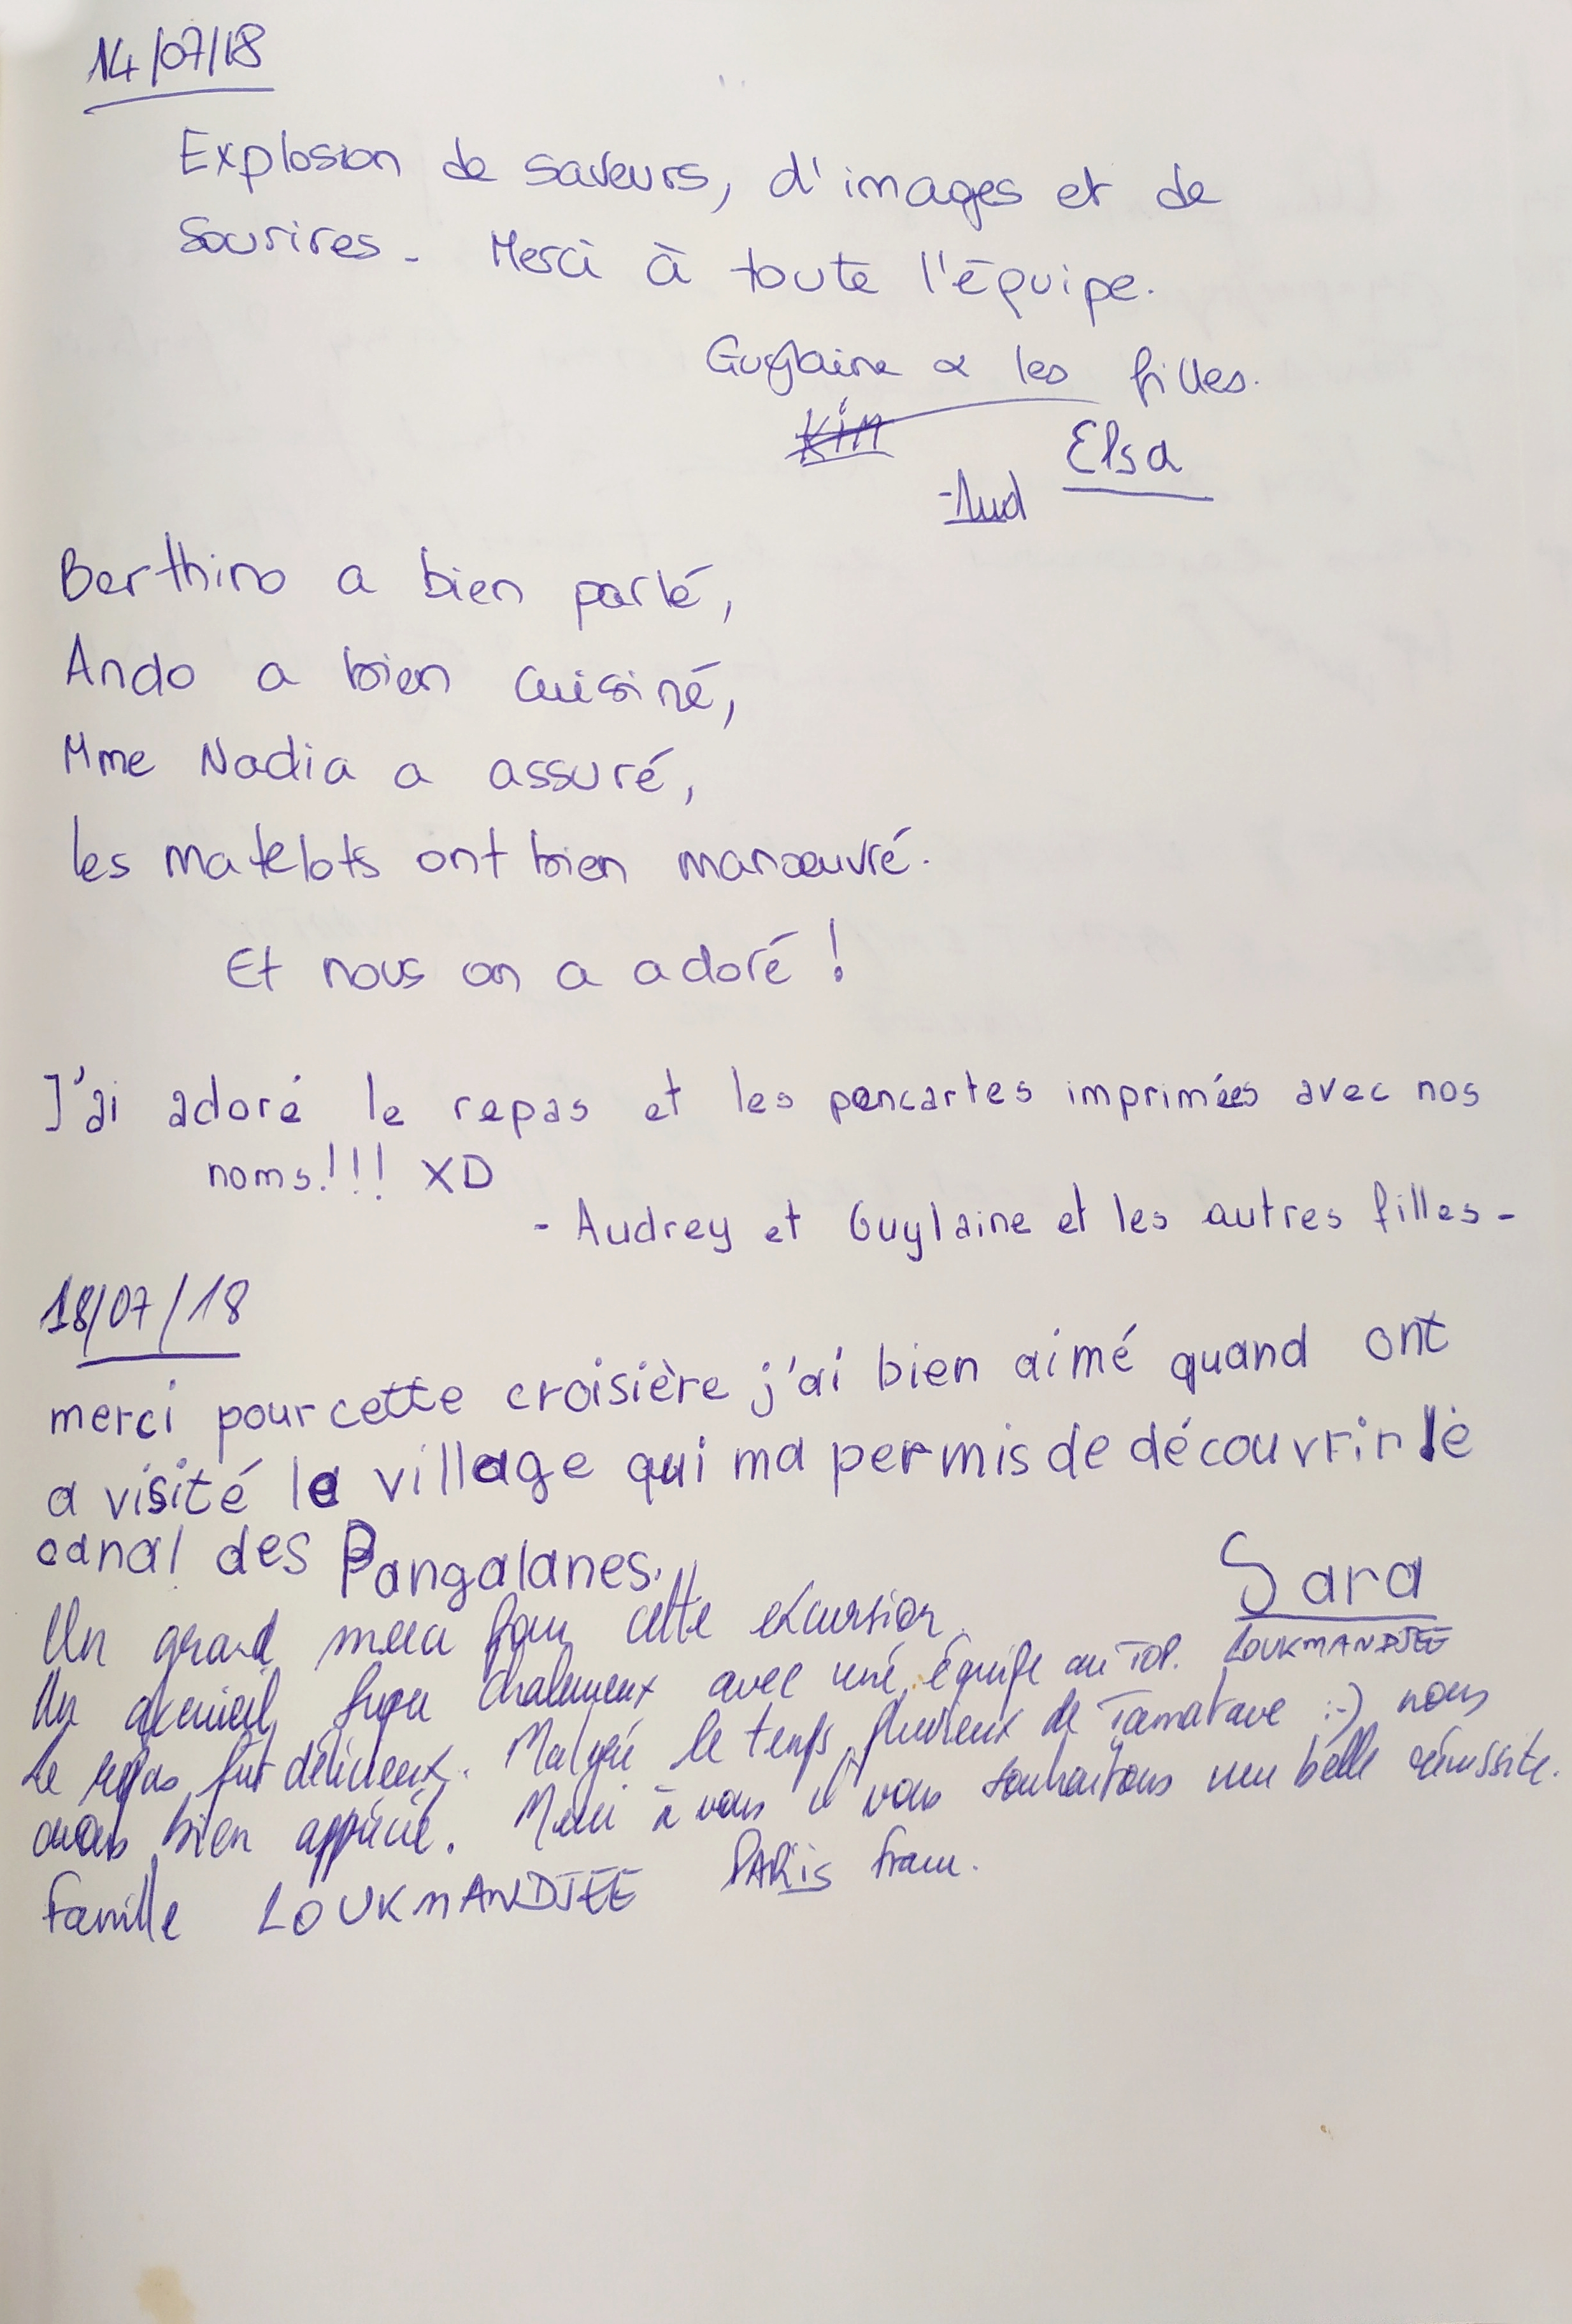 14/07/18
Explosion de saveurs, d'images et de
sourires. Merci à toute l'équipe.
Guylaine & les filles.
Kim
Elsa
-Aud
Berthino a bien parlé,
Ando a bien cuisiné,
Mme Nadia a assuré,
les matelots ont bien manœuvré.
Et nous on a adoré !
J'ai adoré le repas et les pancartes imprimées avec nos
noms!!! XD
- Audrey et Guylaine et les autres filles -
18/07/18
merci pour cette croisière j'ai bien aimé quand ont
a visité le village qui ma permis de découvrir le
canal des Pangalanes.
Sara
LOUKMANDJEE
Un grand merci pour cette excursion.
Un accueil chaleureux avec une équipe au TOP.
Le repas fut délicieux. Malgré le temps pluvieux de Tamatave :-) nous
avons bien apprécié. Merci à vous et vous souhaitons une belle réussite.
Famille LOUKMANDJEE PARIS France.